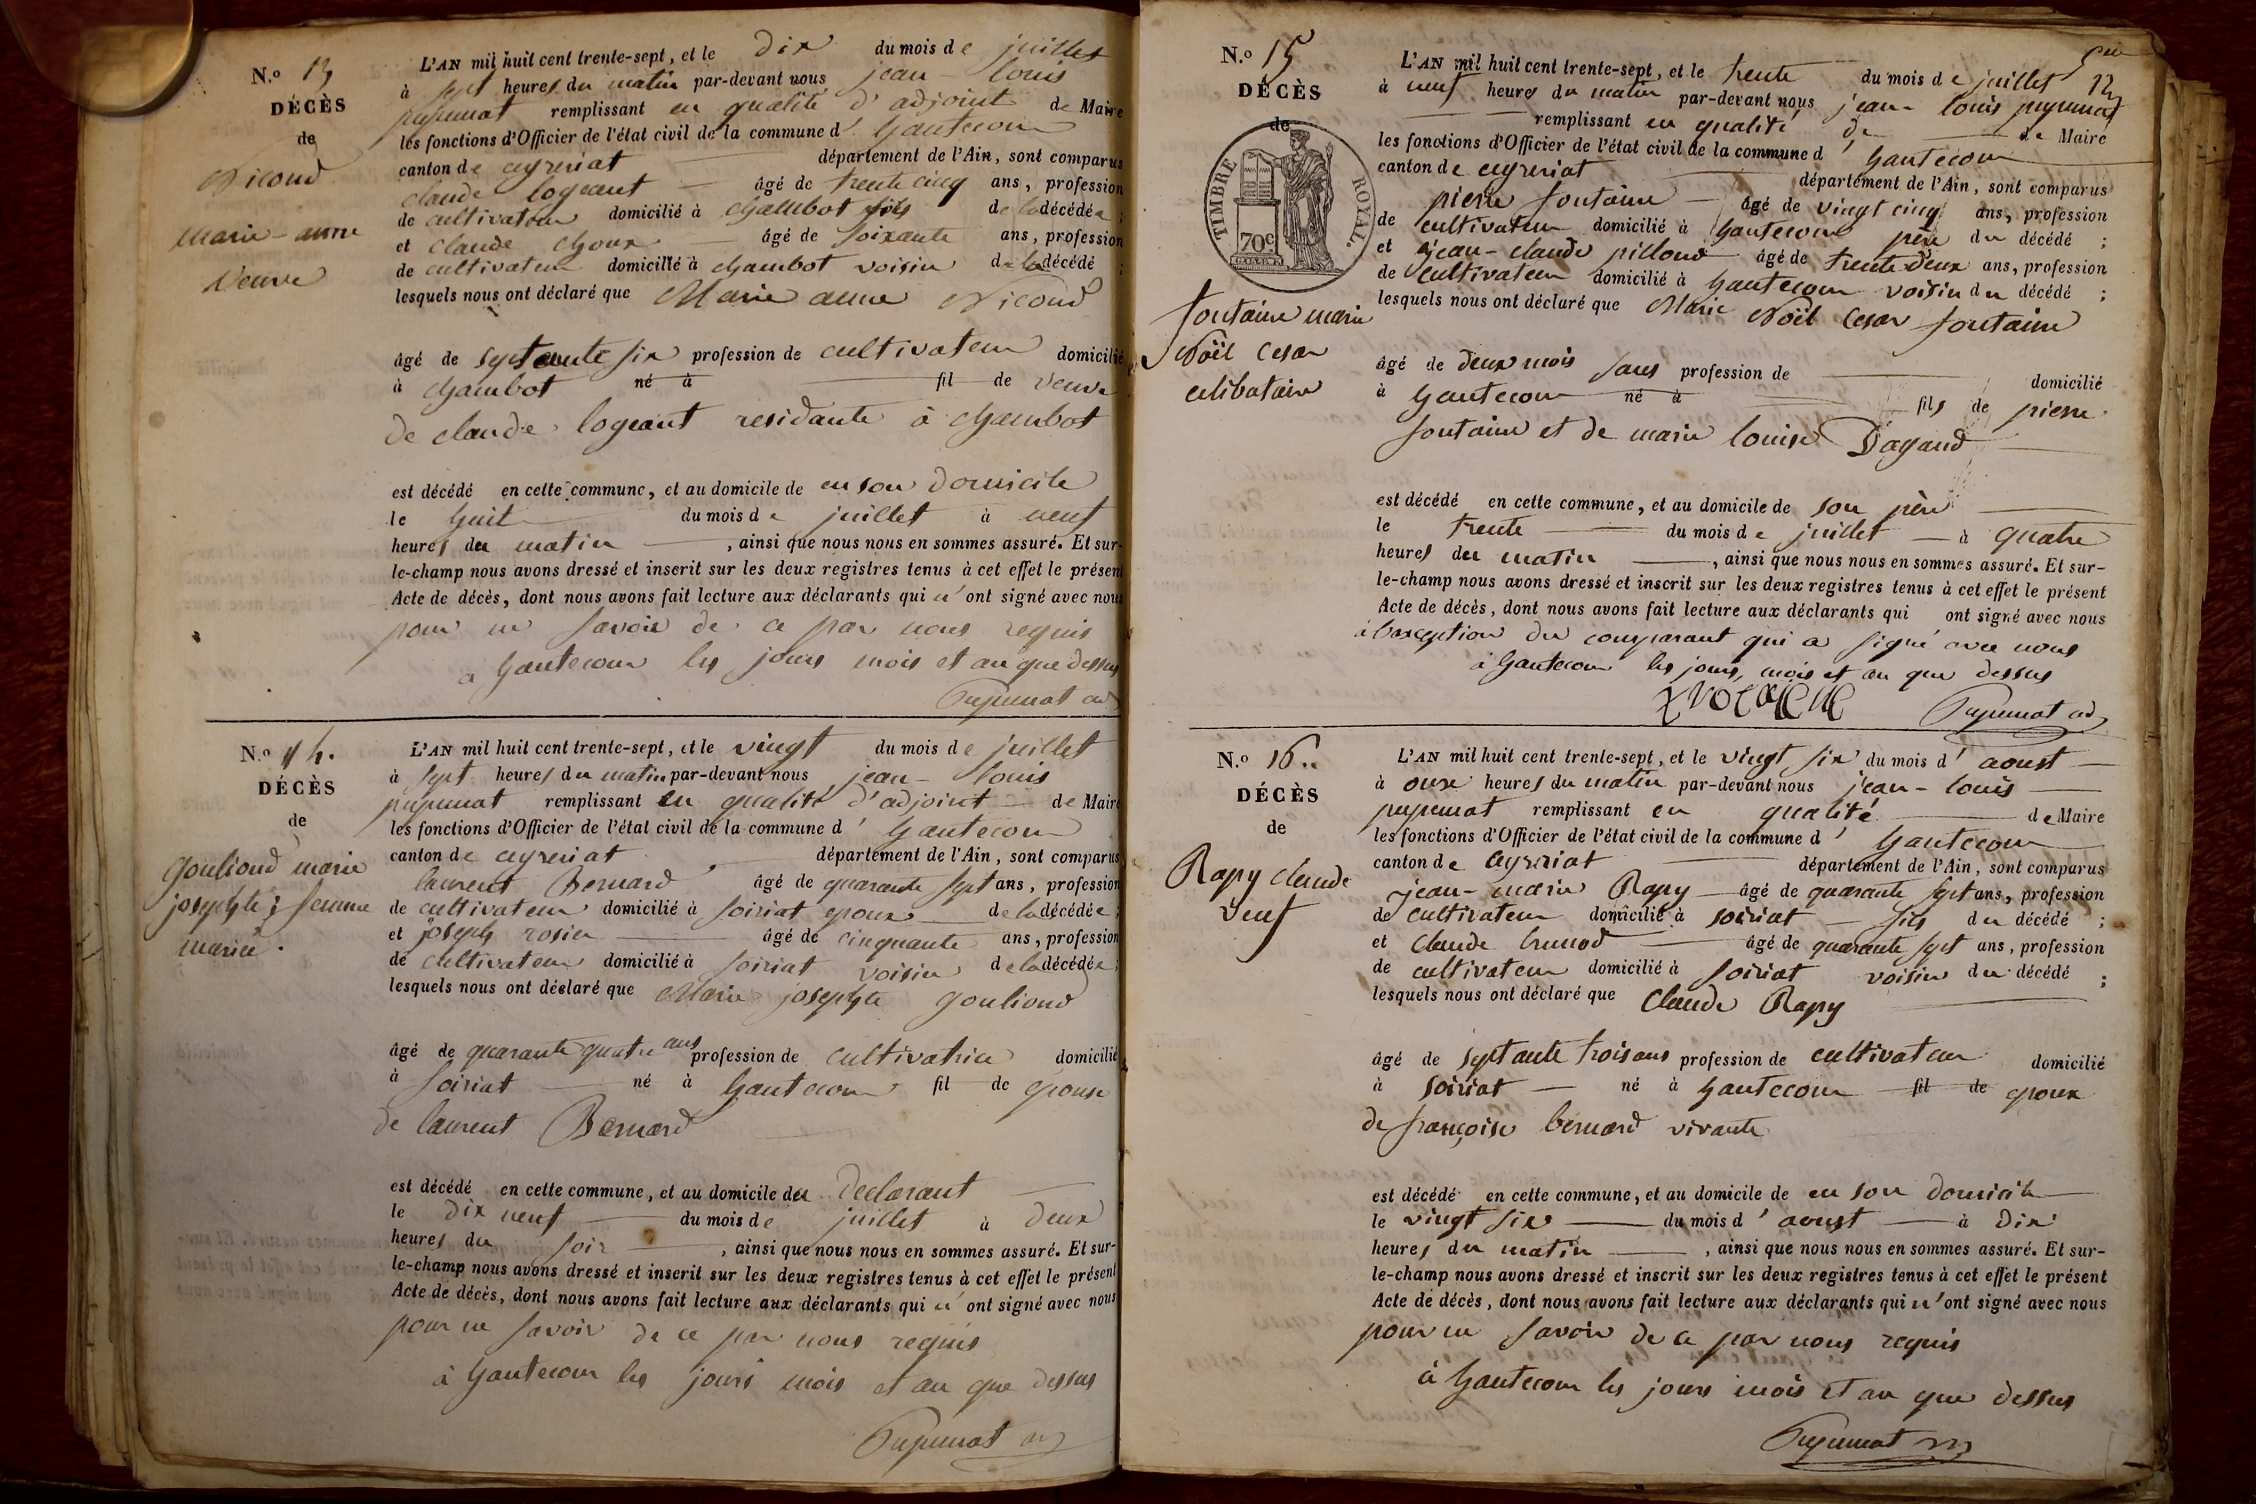 N.o 13
DÉCÈS
de
Nicoud
Marie-anne
veuve
L'AN mil huit cent trente-sept, et le dix du mois de juillet
à sept heures du matin par-devant nous jean-louis
pupunat remplissant en qualité d'adjoint de Maire
les fonctions d'Officier de l'état civil de la commune d'hautecour
canton de ceyzeriat département de l'Ain, sont comparus
claude logeant âgé de trente cinq ans, profession
de cultivateur domicilié à chambot fils de la décédée ;
et claude choux âgé de soixante ans, profession
de cultivateur domicilié à chambot voisin de la décédé ;
lesquels nous ont déclaré que Marie anne Nicoud
âgé de septante six profession de cultivateur domicilié
à chambot né à fil de veuve
de claude logeant residante à chambot
est décédé en cette commune, et au domicile de en son domicile
le huit du mois de juillet à neuf
heures du matin , ainsi que nous nous en sommes assuré. Et sur-
le-champ nous avons dressé et inscrit sur les deux registres tenus à cet effet le présent
Acte de décès, dont nous avons fait lecture aux déclarants qui n'ont signé avec nous
pour ne savoir de ce par nous requis
a hautecour les jours mois et an que dessus
Pupunat adj
N.o 14.
DÉCÈS
de
Gouliond marie
josephte; femme
mariée.
L'AN mil huit cent trente-sept, et le vingt du mois de juillet
à sept heures du matin par-devant nous jean-louis
pupunat remplissant en qualité d'adjoint de Maire
les fonctions d'Officier de l'état civil de la commune d'hautecour
canton de ceyzeriat département de l'Ain, sont comparus
laurent Bernard âgé de quarante sept ans, profession
de cultivateur domicilié à soiriat epoux de la décédée ;
et joseph rosier âgé de cinquante ans, profession
de cultivateur domicilié à soiriat voisin de la décédée ;
lesquels nous ont déclaré que Marie josephte gouliond
âgé de quarante quatre ans profession de cultivatrice domicilié
à soiriat né à hautecour fil de epouse
de laurent Bernard
est décédé en cette commune, et au domicile du declarant
le dix neuf du mois de juillet à deux
heures du soir , ainsi que nous nous en sommes assuré. Et sur-
le-champ nous avons dressé et inscrit sur les deux registres tenus à cet effet le présent
Acte de décès, dont nous avons fait lecture aux déclarants qui n'ont signé avec nous
pour ne savoir de ce par nous requis
à hautecour les jours mois et an que dessus
Pupunat adj
N.o 15
DÉCÈS
de
TIMBRE ROYAL.
70c
fontaine marie
Noël Cesar
celibataire
12
L'AN mil huit cent trente-sept, et le trente du mois de juillet
à neuf heures du matin par-devant nous jean-louis pupunat
remplissant en qualité de de Maire
les fonctions d'Officier de l'état civil de la commune d'hautecour
canton de ceyzeriat département de l'Ain, sont comparus
pierre fontaine âgé de vingt cinq ans, profession
de cultivateur domicilié à hautecour père du décédé ;
et jean-claude pilloud âgé de trente deux ans, profession
de cultivateur domicilié à hautecour voisin du décédé ;
lesquels nous ont déclaré que Marie Noël Cesar fontaine
âgé de deux mois sans profession de domicilié
à hautecour né à fils de pierre
fontaine et de marie louise Dagaud
est décédé en cette commune, et au domicile de son père
le trente du mois de juillet à quatre
heures du matin , ainsi que nous nous en sommes assuré. Et sur-
le-champ nous avons dressé et inscrit sur les deux registres tenus à cet effet le présent
Acte de décès, dont nous avons fait lecture aux déclarants qui ont signé avec nous
à l'exception du comparant qui a signé avec nous
à hautecour les jours, mois et an que dessus
Pupunat adj
N.o 16..
DÉCÈS
de
Rapy claude
veuf
L'AN mil huit cent trente-sept, et le vingt six du mois d'aoust
à onze heures du matin par-devant nous jean-louis
pupunat remplissant en qualité de Maire
les fonctions d'Officier de l'état civil de la commune d'hautecour
canton de ceyzeriat département de l'Ain, sont comparus
jean-marie Rapy âgé de quarante sept ans, profession
de cultivateur domicilié à soiriat fils du décédé ;
et claude brunod âgé de quarante sept ans, profession
de cultivateur domicilié à soiriat voisin du décédé ;
lesquels nous ont déclaré que Claude Rapy
âgé de septante trois ans profession de cultivateur domicilié
à soiriat né à hautecour fil de epoux
de françoise bernard vivante
est décédé en cette commune, et au domicile de en son domicile
le vingt six du mois d'aoust à dix
heures du matin , ainsi que nous nous en sommes assuré. Et sur-
le-champ nous avons dressé et inscrit sur les deux registres tenus à cet effet le présent
Acte de décès, dont nous avons fait lecture aux déclarants qui n'ont signé avec nous
pour ne savoir de ce par nous requis
à hautecour les jours mois et an que dessus
Pupunat